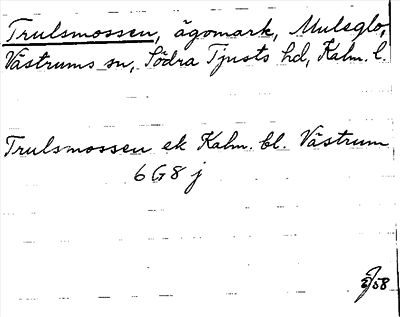 Trulsmossen, ägomark, Muleglo,
Västrums sn, Södra Tjusts hd, Kalm. l.
Trulsmossen ek Kalm. bl. Västrum
6 G 8 j
58